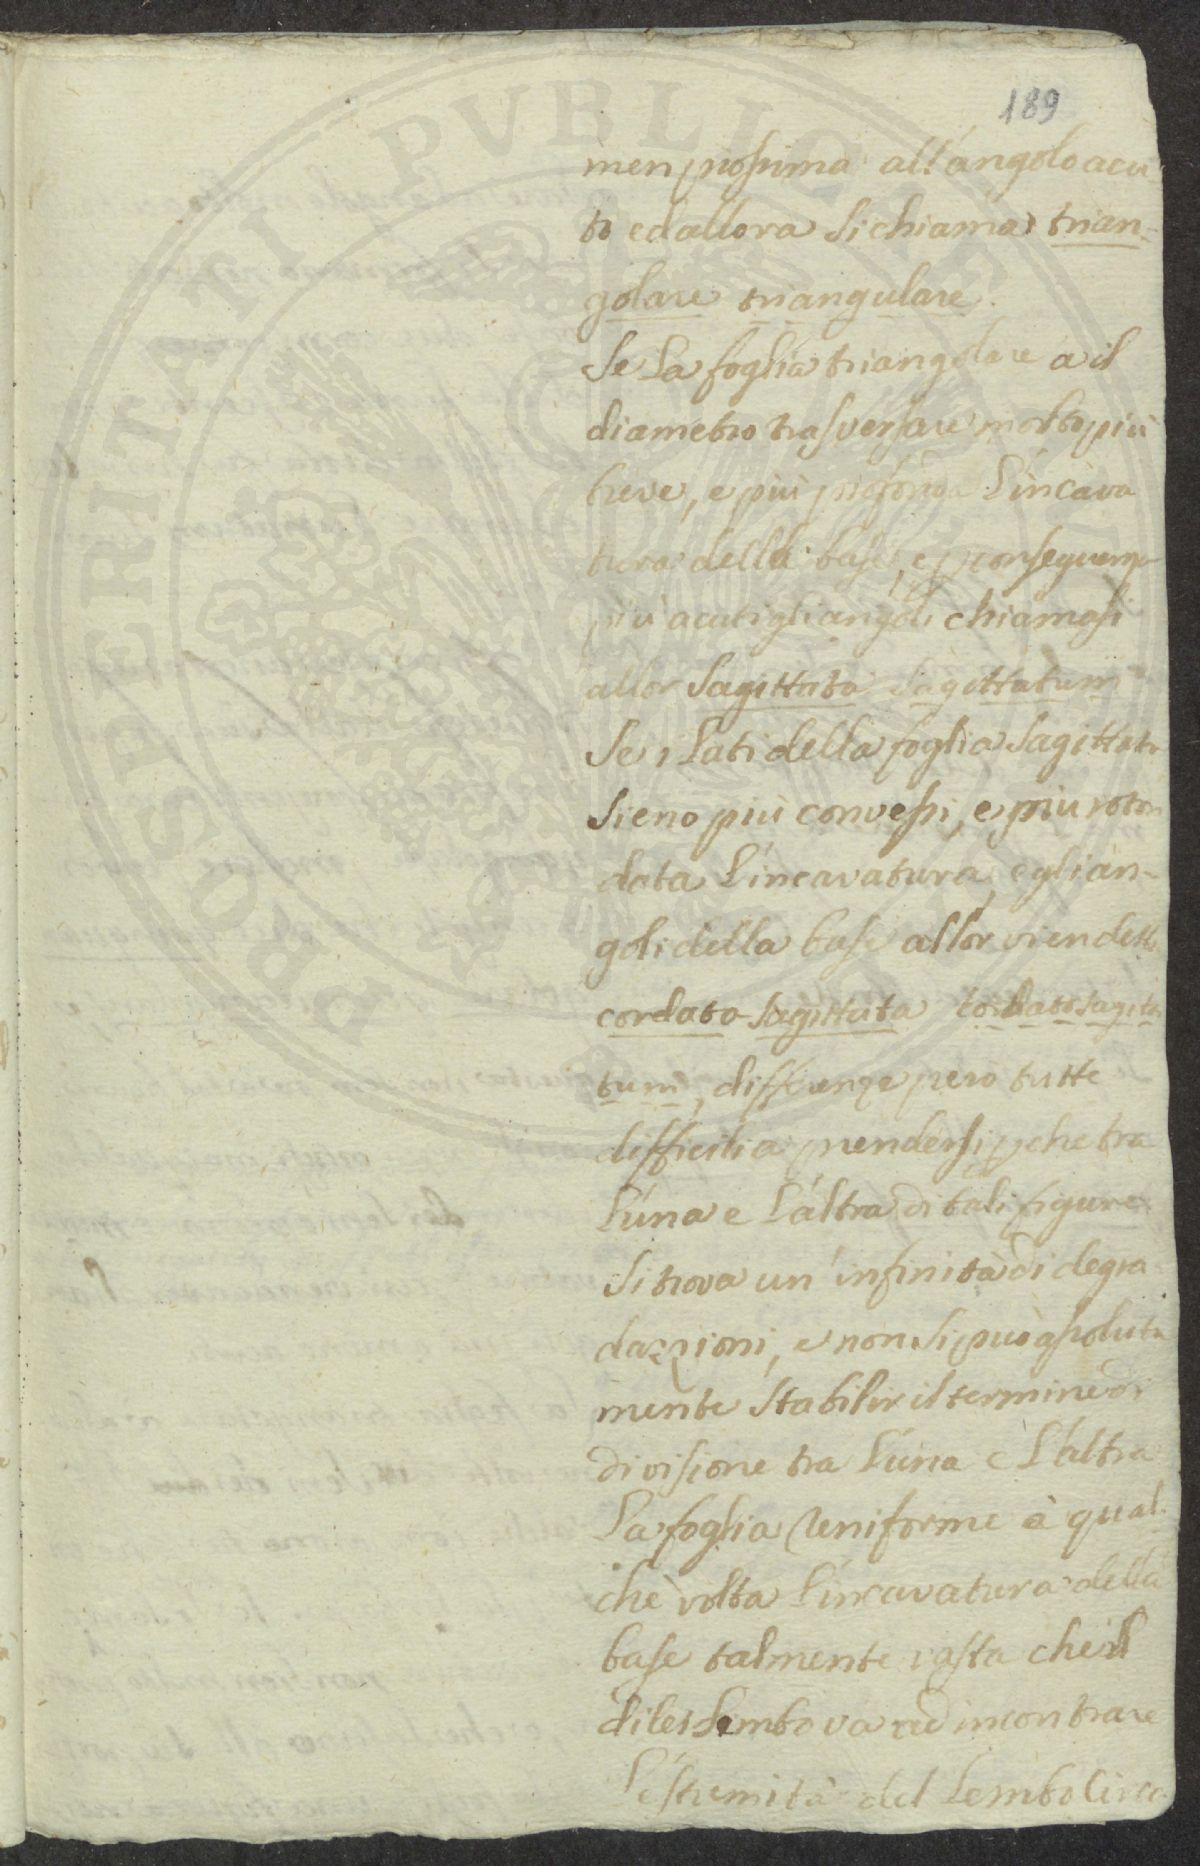 189
men prossima all'angolo acu
to ed allora si chiama trian-
golare triangulare.
Se la foglia triangolare a il
diametro trasversare molto più
breve, e più profonda l'incava
tura della base, e p conseguem
più acuti gli angoli chiamasi
allor sagittata sagittatum
Se i lati della foglia sagittata
sieno più convessi, e più roton
data l'incavatura, e gli an-
goli della base allor vien detta
cordato-sagittata cordatosagita
tum, differenze però tutte
difficili a prendersi pche tra
l'una e l'altra di tali figure
si trova un' infinità di degra
dazzioni, e non si può assoluta
mente stabilir il termine di
divisione tra l'una e l'altra
La foglia reniforme à qual-
che volta l'incavatura della
base talmente vasta che il
di lei lembo va ad incontrare
l'estremità del lembo circo
PROSPERITATI PVBLICAE